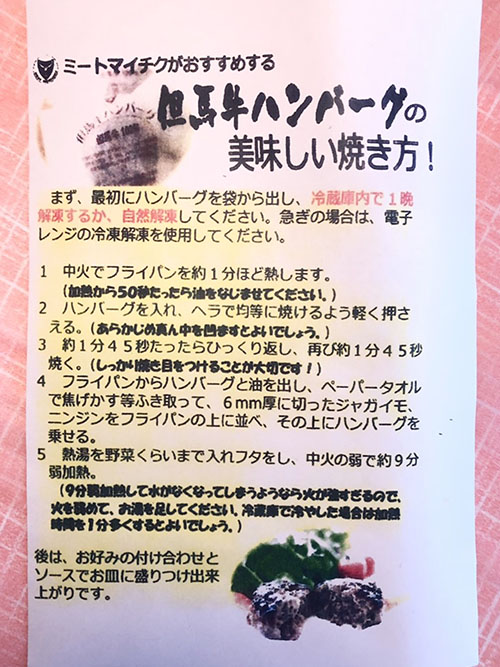 ミートマイチクがおすすめする
但馬牛ハンバーグの
美味しい焼き方！
まず、最初にハンバーグを袋から出し、冷蔵庫内で１晩
解凍するか、自然解凍してください。急ぎの場合は、電子
レンジの冷凍解凍を使用してください。
1 中火でフライパンを約１分ほど熱します。
（加熱から５０秒たったら油をなじませてください。）
2 ハンバーグを入れ、ヘラで均等に焼けるよう軽く押さ
える。（あらかじめ真ん中を凹ますとよいでしょう。）
3 約１分４５秒たったらひっくり返し、再び約１分４５秒
焼く。（しっかり焼き目をつけることが大切です！）
4 フライパンからハンバーグと油を出し、ペーパータオル
で焦げかす等ふき取って、６ｍｍ厚に切ったジャガイモ、
ニンジンをフライパンの上に並べ、その上にハンバーグを
乗せる。
5 熱湯を野菜くらいまで入れフタをし、中火の弱で約９分
弱加熱。
（９分弱加熱して水がなくなってしまうようなら火が強すぎるので、
火を弱めて、お湯を足してください。冷蔵庫で冷やした場合は加熱
時間を１分多くするとよいでしょう。）
後は、お好みの付け合わせと
ソースでお皿に盛りつけ出来
上がりです。